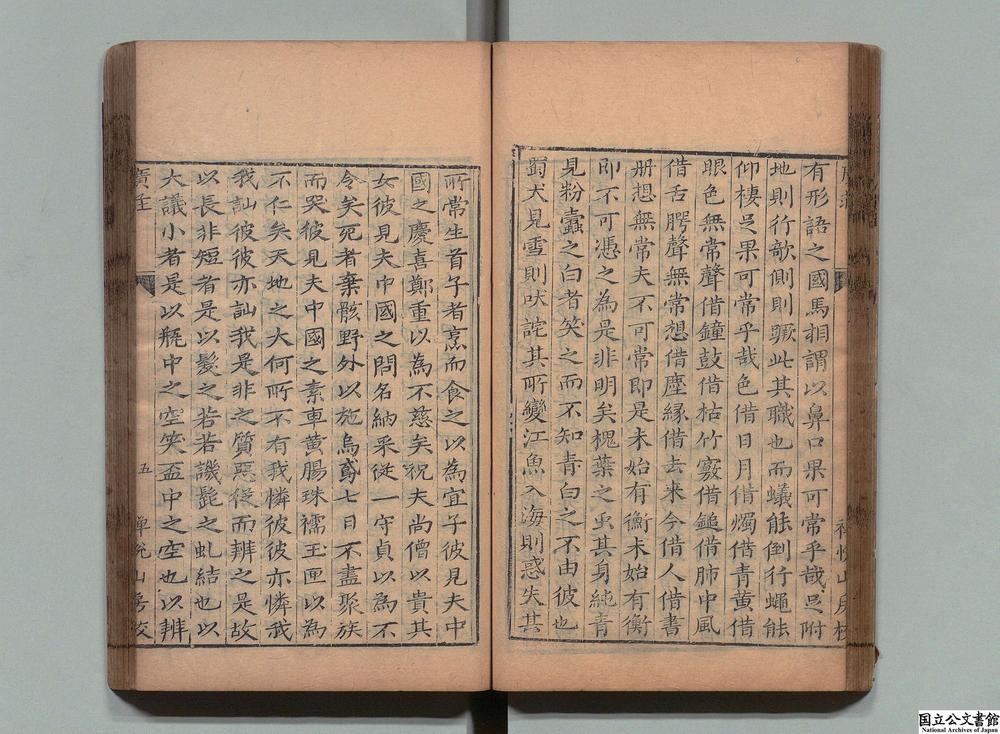 有形語之國馬相謂以鼻口果可常乎哉足附
地則行欹側則蹶此其職也而蟻能倒行蠅能
仰棲足果可常乎哉色借日月借燭借青黄借
眼色無常聲借鐘鼓借枯竹竅借鎚借肺中風
借舌腭聲無常想借塵縁借去来今借人借書
册想無常夫不可常即是未始有衡未始有衡
即不可憑之為是非明矣槐葉之虫其身純青
見粉蠹之白者笑之而不知青白之不由彼也
蜀犬見雪則吠詫其所變江魚入海則惑失其
所常生首子者烹而食之以為宜子彼見夫中
國之慶喜鄭重以為不慈矣祝夫尚僧以貴其
女彼見夫中國之問名納采従一守貞以為不
令矣死者棄骸野外以施烏鳶七日不盡聚族
而哭彼見夫中國之素車黄腸珠襦玉匣以為
不仁矣天地之大何所不有我憐彼彼亦憐我
我訕彼彼亦訕我是非之質惡従而辨之是故
以長非短者是以髮之若若譏髭之虬結也以
大議小者是以瓶中之空笑盃中之空也以辨
廣荘
五
国立公文書館
National Archives of Japan